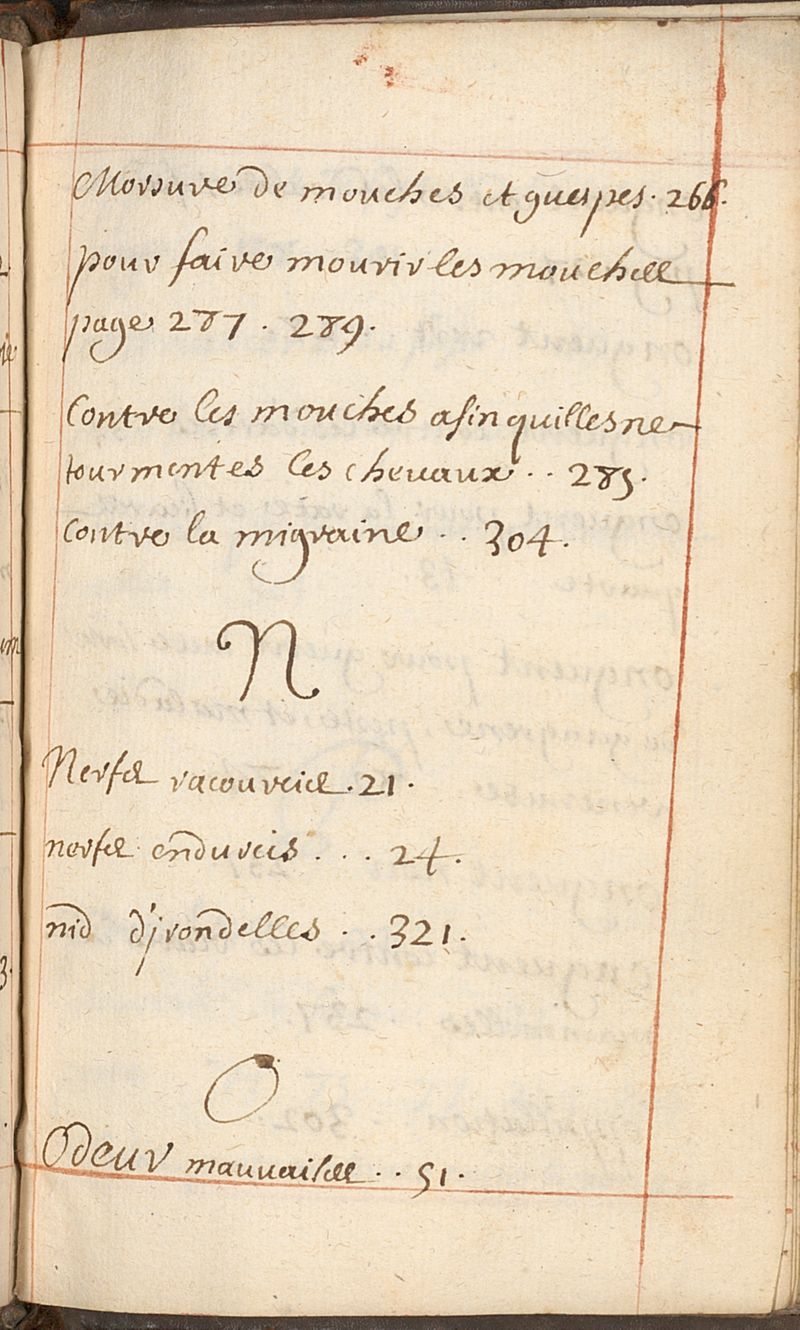 Morsure de mouches et guespes. 266.
pour faire mourir les mouches
page 287. 289.
Contre les mouches afin quilles ne
tourmentes les chevaux.. 285.
contre la migraine.. 304.
N
Nerfs racourcie. 21.
nerfs endurcis... 24.
nid d'jrondelles.. 321.
O
Odeur mauvaises.. 51.